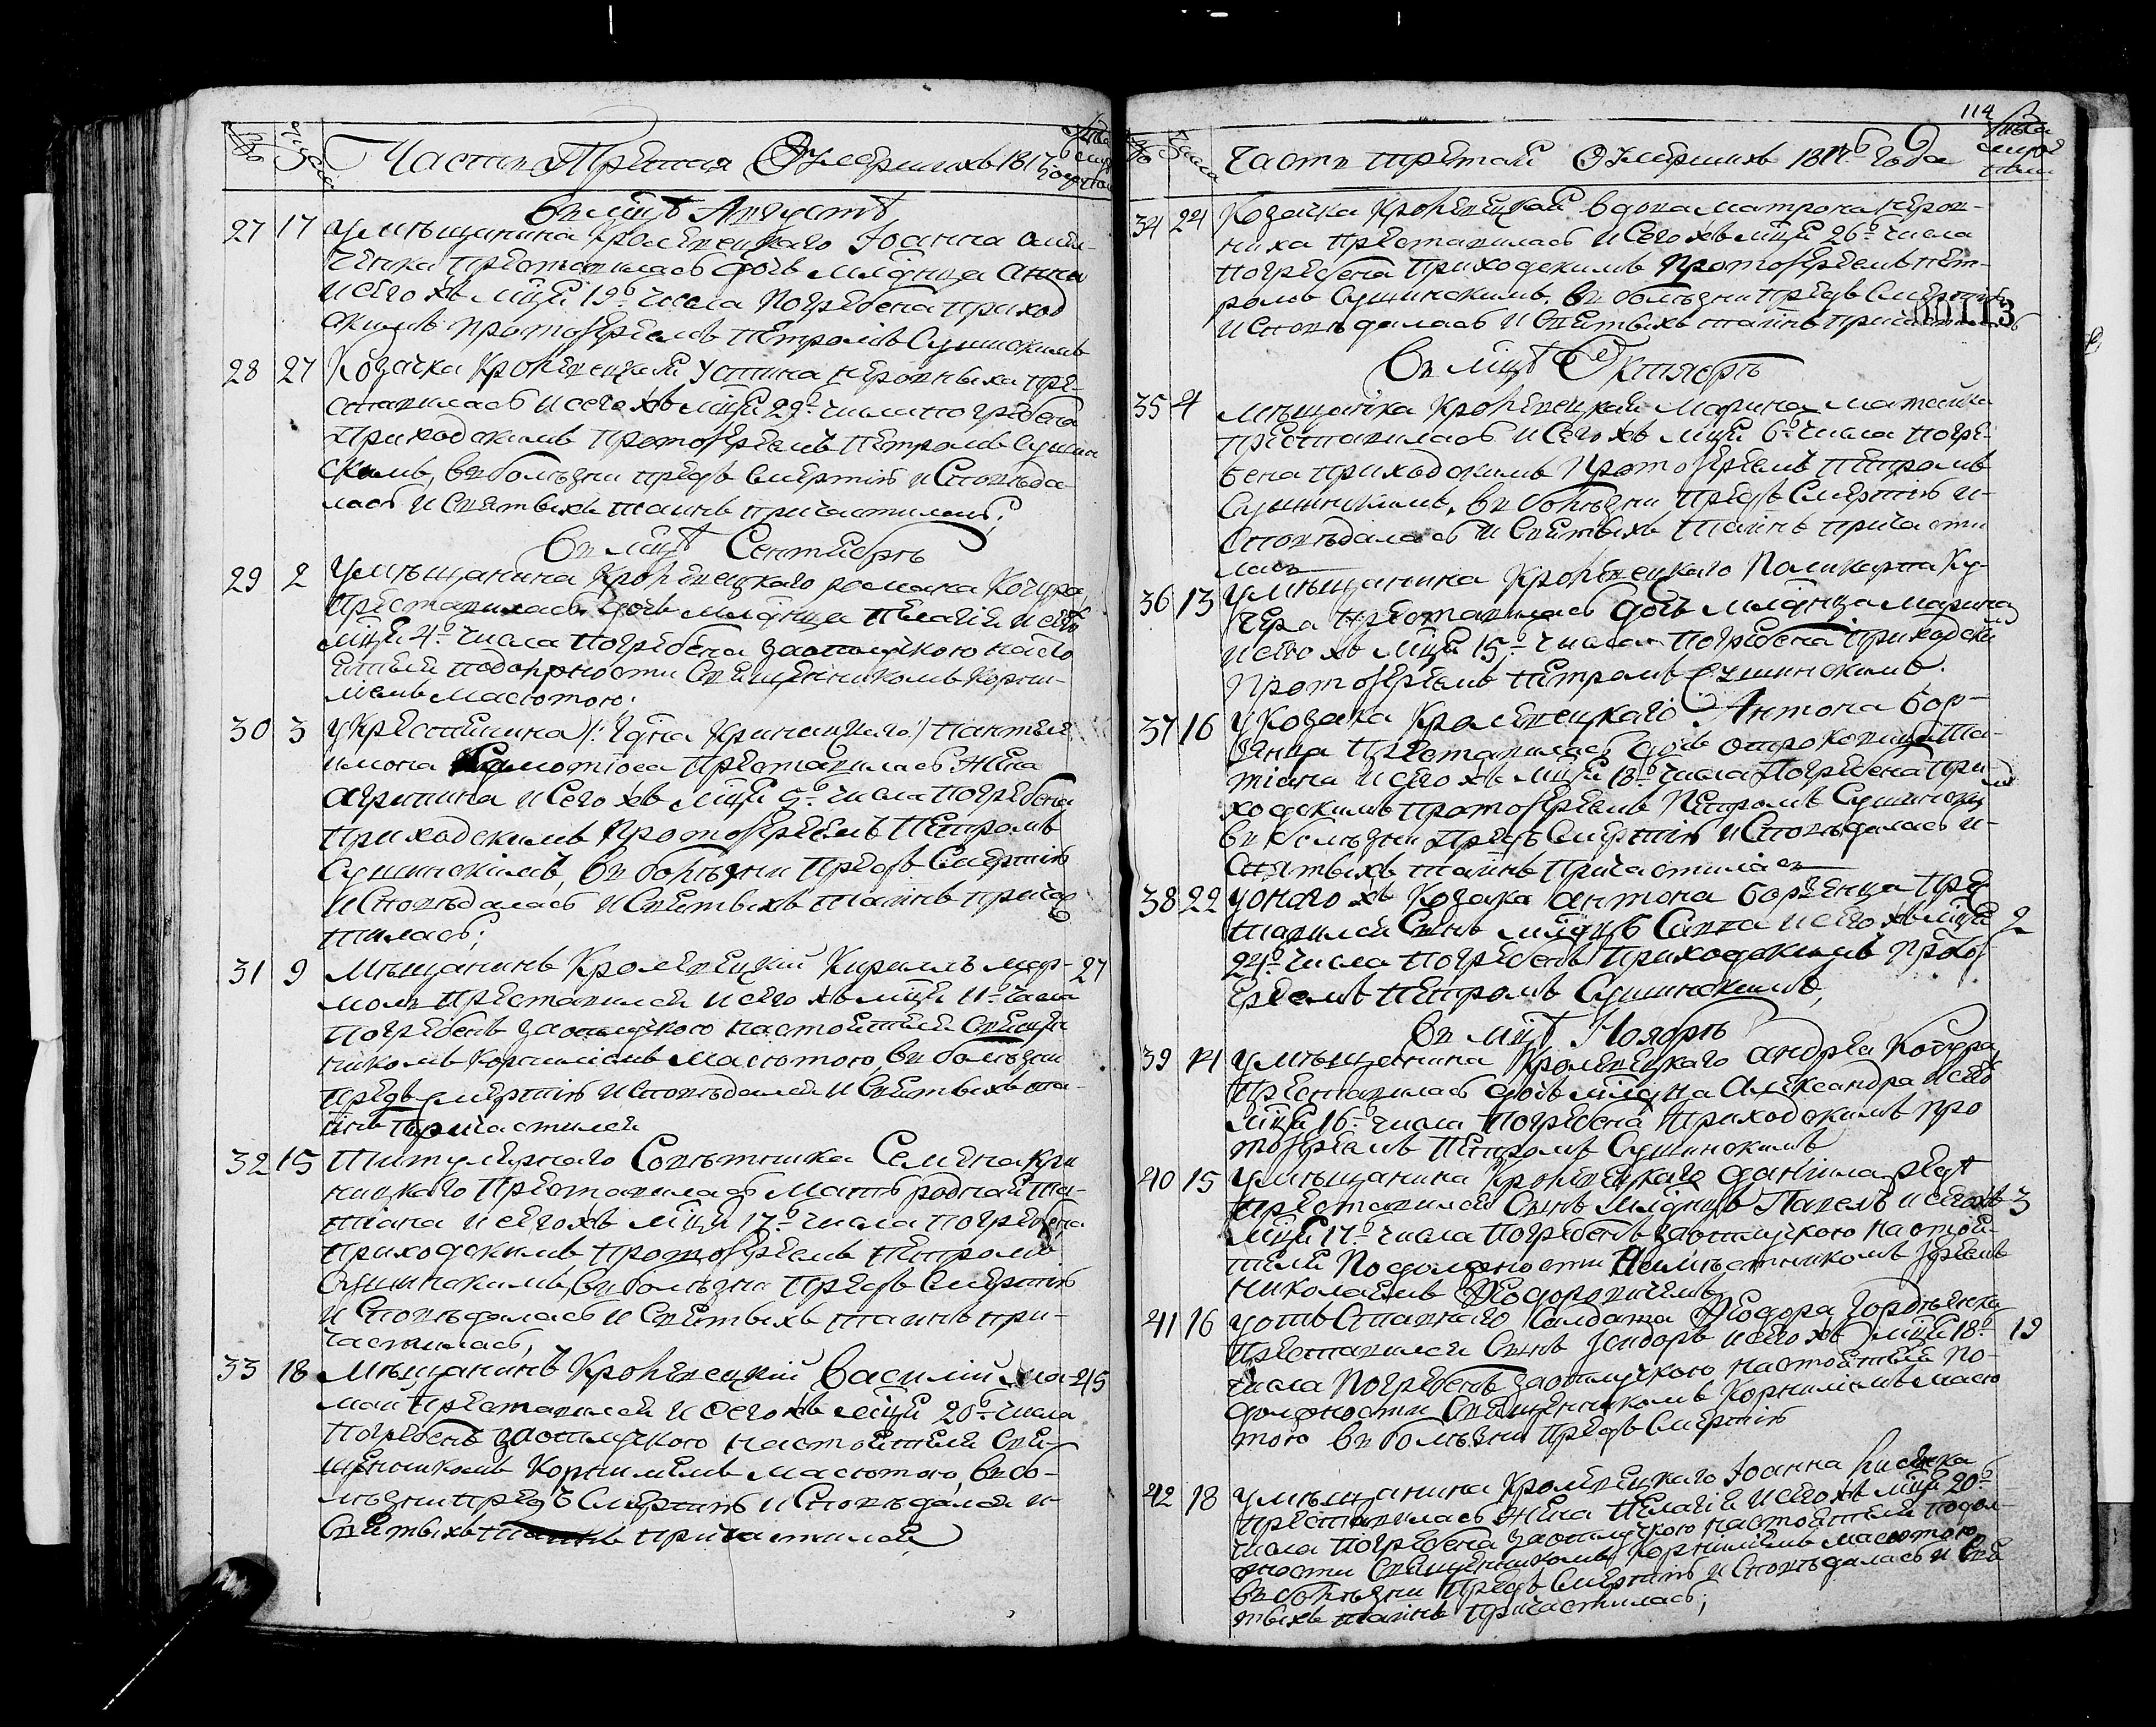 Часть Третая О Умершихъ 1817
Въ мцѣ Августѣ
27 17 У мѣщанина Кролевецкаго Іоанна
ченка преставилась дочь младница Анна
и сего жъ мця 19го числа погребена приход
скимъ протоіереемъ Петромъ Сушинскимъ
28 27 Козачка Кролевецкая Устина пре-
ставилась и сего жъ мця 29го числа погребена
приходскимъ протоіереемъ Петромъ Сушин
скимъ, въ болѣзни предъ смертію исповѣда
лась и святыхъ таинъ причастилась;
Въ мцѣ Сентябрѣ
29 2 У мѣщанина Кролевецкаго Романа Кочура
преставилась дочь младница Пелагія и сего
мця 4го числа погребена заотлучкою насто
ятеля по должности священникомъ Корни-
ліемъ Масютою.
30 3 У крестянина Пантеле
имона преставилась жена
Агрипина и сего жъ мця 5го числа погребена
приходскимъ протоіереемъ Петромъ
Сушинскимъ, въ болѣзни предъ смертію
исповѣдалась и святыхъ таинъ прича
стилась;
31 9 Мѣщанинъ Кролевецкій Кирилъ Мар- 27
молъ преставился и сего жъ мця 11го числа
погребенъ заотлучкою настоятеля священ
никомъ Корниліемъ Масютою, въ болѣзни
предъ смертію исповѣдался и святыхъ та-
инъ причастился
32 15 Титулярнаго Совѣтника Семена Кри
ницкаго преставилась мать родная Та-
тіана и сего жъ мця 17го числа погребена
приходскимъ протоіереемъ Петромъ
Сушинскимъ, въ болѣзни предъ смертію
исповѣдалась и святыхъ таинъ при-
частилась,
33 18 Мѣщанинъ Кролевецкій Василій 45
преставился и сего жъ мця 20го числа
погребенъ заотлучкою настоятеля свя-
щенникомъ Корниліемъ Масютою, въ бо-
лѣзни предъ смертію исповѣдался и
святыхъ таинъ причастился
114
Часть третая О Умершихъ 1817го Года
34 24 Козачка Кролевецкая вдова Матрона
преставилась и сего жъ мця 26го числа
погребена приходскимъ протоіереемъ Пет-
ромъ Сушинскимъ, въ болѣзни предъ смертію
исповѣдалась и святыхъ таинъ причастилась
00113
Въ мцѣ Октябрѣ
35 4 Мѣщанка Кролевецкая Марина
преставилась и сего жъ мця 6го числа погре-
бена приходскимъ протоіереемъ Петромъ
Сушинскимъ, въ болѣзни предъ смертію и-
сповѣдалась и святыхъ таинъ причасти
лась
36 13 У мѣщанина Кролевецкаго Поликарпа Ку-
чера преставилась дочь младница Марина
и сего жъ мця 15го числа погребена приходски
протоіереемъ Петромъ Сушинскимъ.
37 16 У козака Кролевецкаго Антона Бор-
зенца преставилась дочь отроковица Та-
тіана и сего жъ мця 18го числа погребена при-
ходскимъ протоіереемъ Петромъ Сушински
въ болѣзни предъ смертію исповѣдалась и
святыхъ таинъ причастилась
38 22 У оного жъ козака Антона Борзенца пре
ставился сынъ младнцъ Савва и сего жъ мця 2
24го числа погребенъ приходскимъ прото
іереемъ Петромъ Сушинскимъ,
Въ мцѣ Ноябрѣ
39 14 У мѣщанина Кролевецкаго Андрея Кочера
преставилась дочь младна Александра и сего
мця 16го числа погребена приходскимъ про
тоіереемъ Петромъ Сушинскимъ
40 15 У мѣщанина Кролевецкаго Даніила
преставился сынъ младнцъ Павелъ и сего жъ 3
мця 17го числа погребенъ заотлучкою настоя-
теля по должности намѣстникомъ іереемъ
Николаемъ Ѳеодоровичемъ
41 16 У отставнаго солдата Ѳеодора Гордѣенка
преставился сынъ Ісидоръ и сего жъ мця 18го 19
числа погребенъ заотлучкою настоятеля по-
должности священникомъ Корниліемъ Масю
тою въ болѣзни предъ смертію
42 18 У мѣщанина Кролевецкаго Іоанна
преставилась жена Пелагія и сего жъ мця 20го
числа погребена заотлучкою настоятеля подол-
жности священникомъ Корниліемъ Масютою
въ болѣзни предъ смертію исповѣдалась и свя
тыхъ таинъ причастилась;